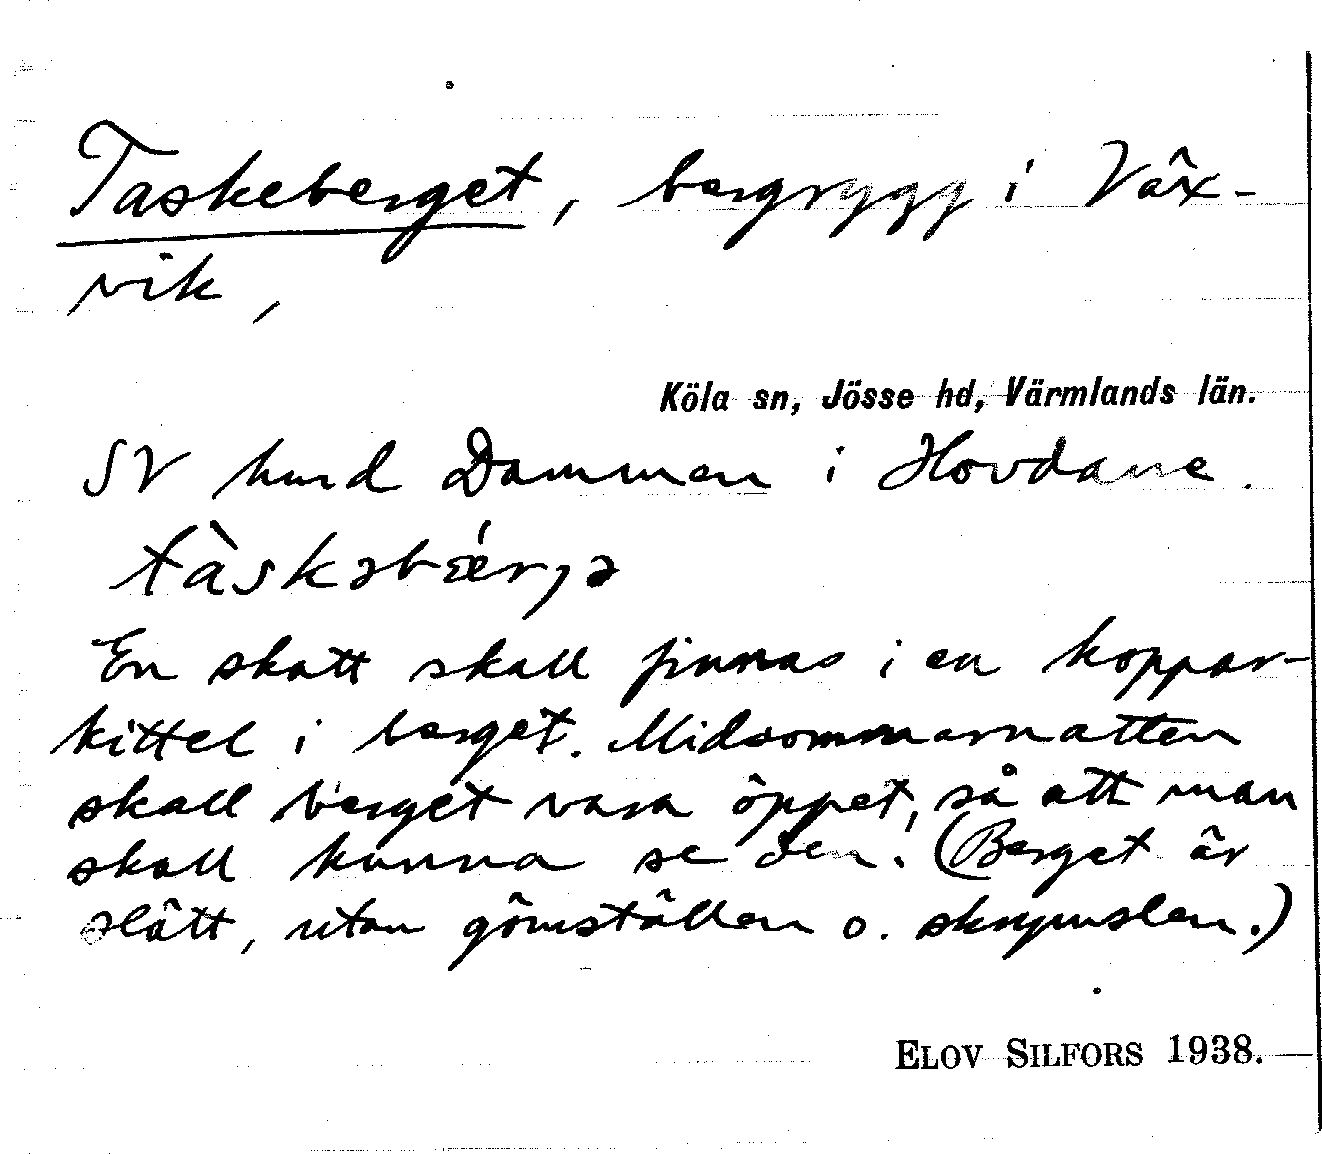 Taskeberget, bergrygg i Väx-
vik,
Köla sn, Jösse hd, Värmlands län.
SV hurd Dammen i Hovdane.
tàskəbǽrjə
En skatt skall finnas i en koppar-
kittel i berget. Midsommarnatten
skall berget vara öppet, så att man
skall kunna se den. (Berget är
slätt, utan gömställen o. skrymslen.)
ELOV SILFORS 1938.